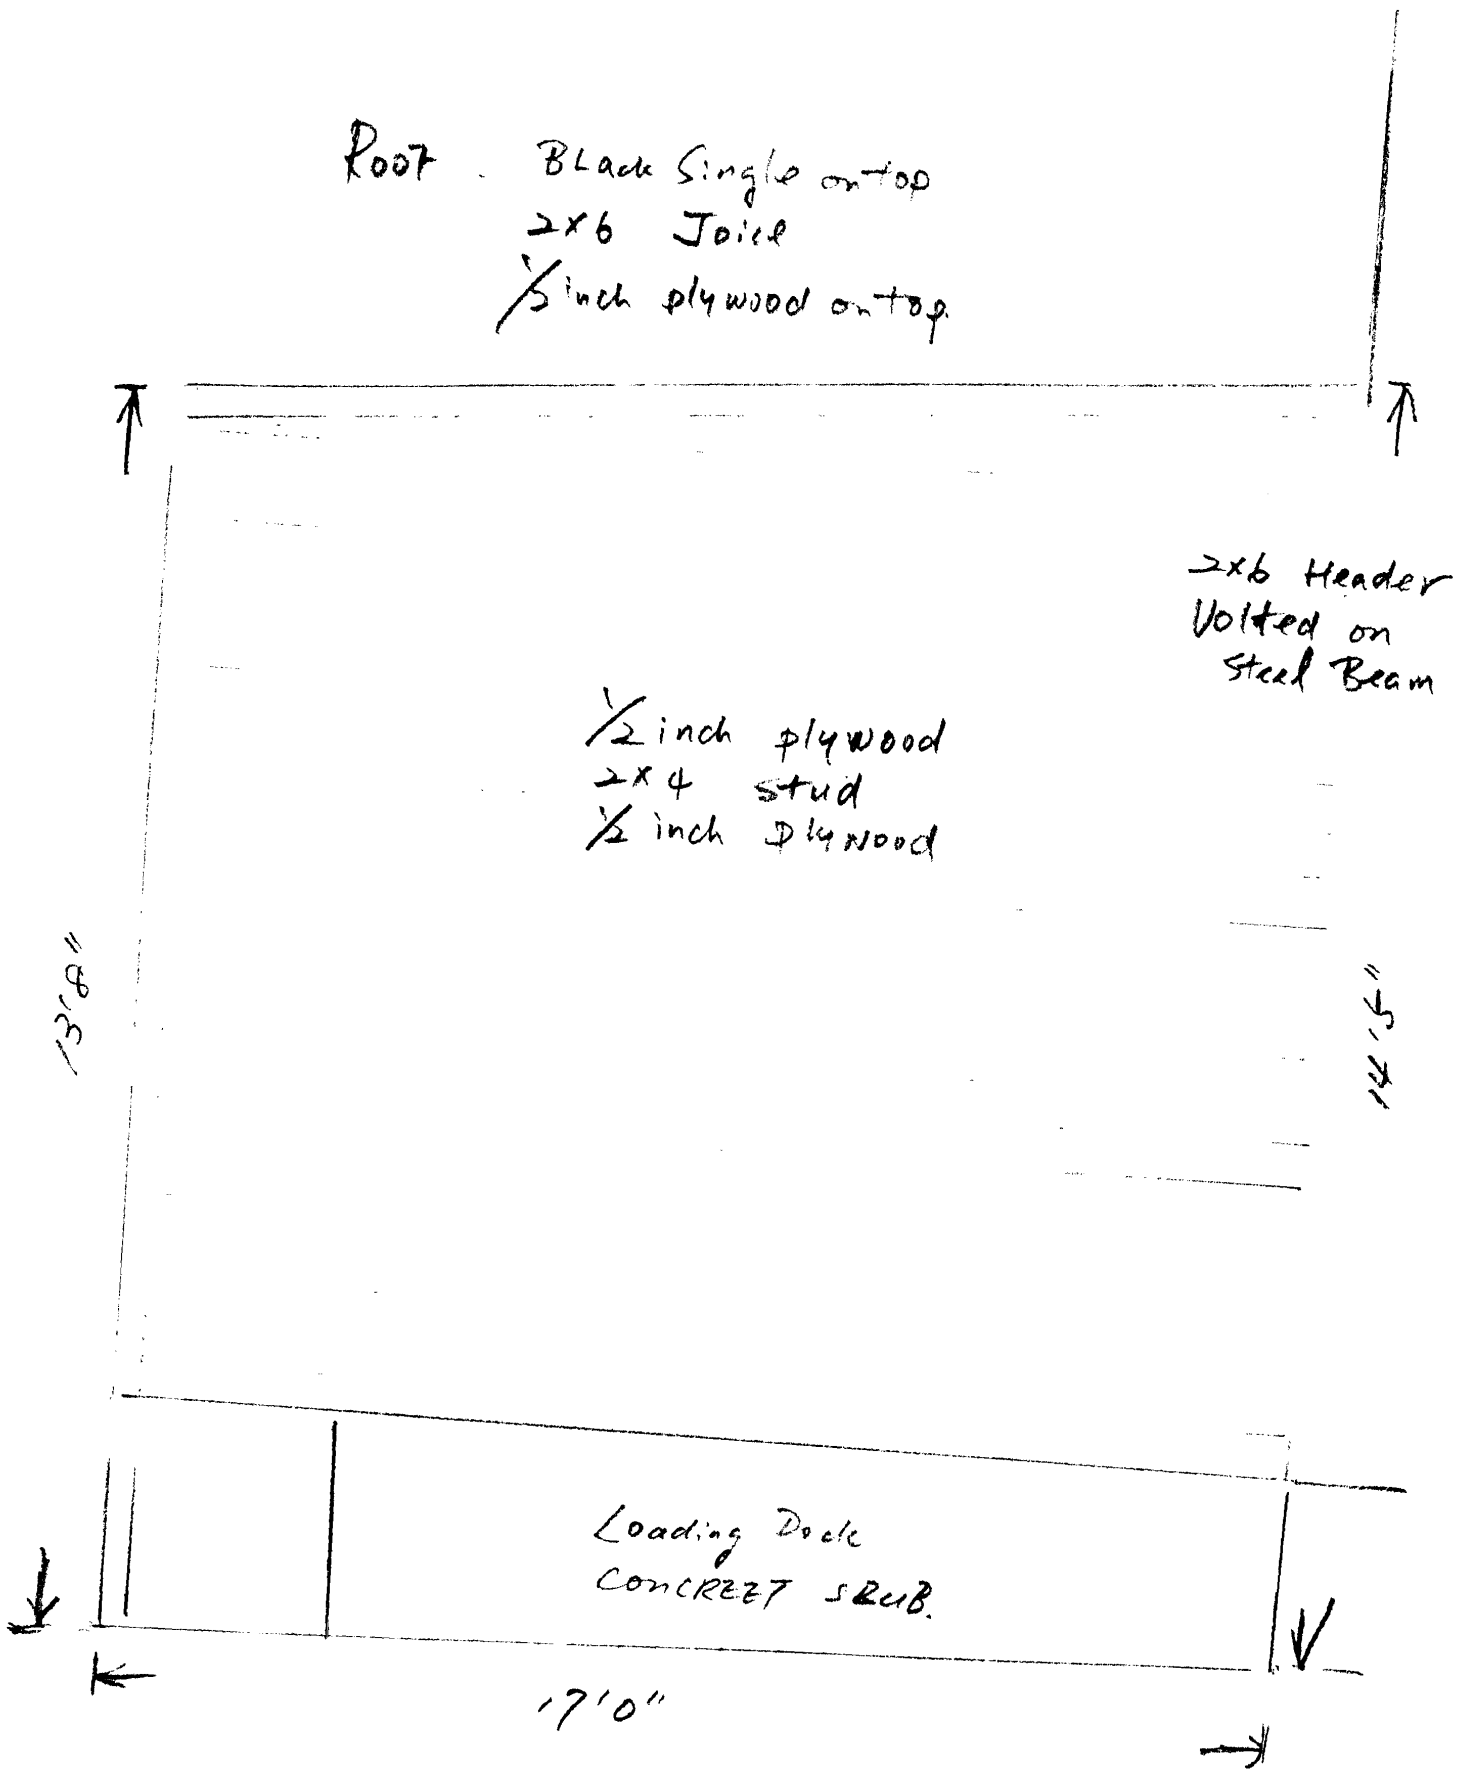 Roof. Black Single on top
2x6 Joice
1/2 inch plywood on top.
2x6 Header
Volted on
Steel Beam
1/2 inch plywood
2x4 stud
1/2 inch plywood
13'8"
14'5"
Loading Dock
CONCREET SLUB.
17'0"